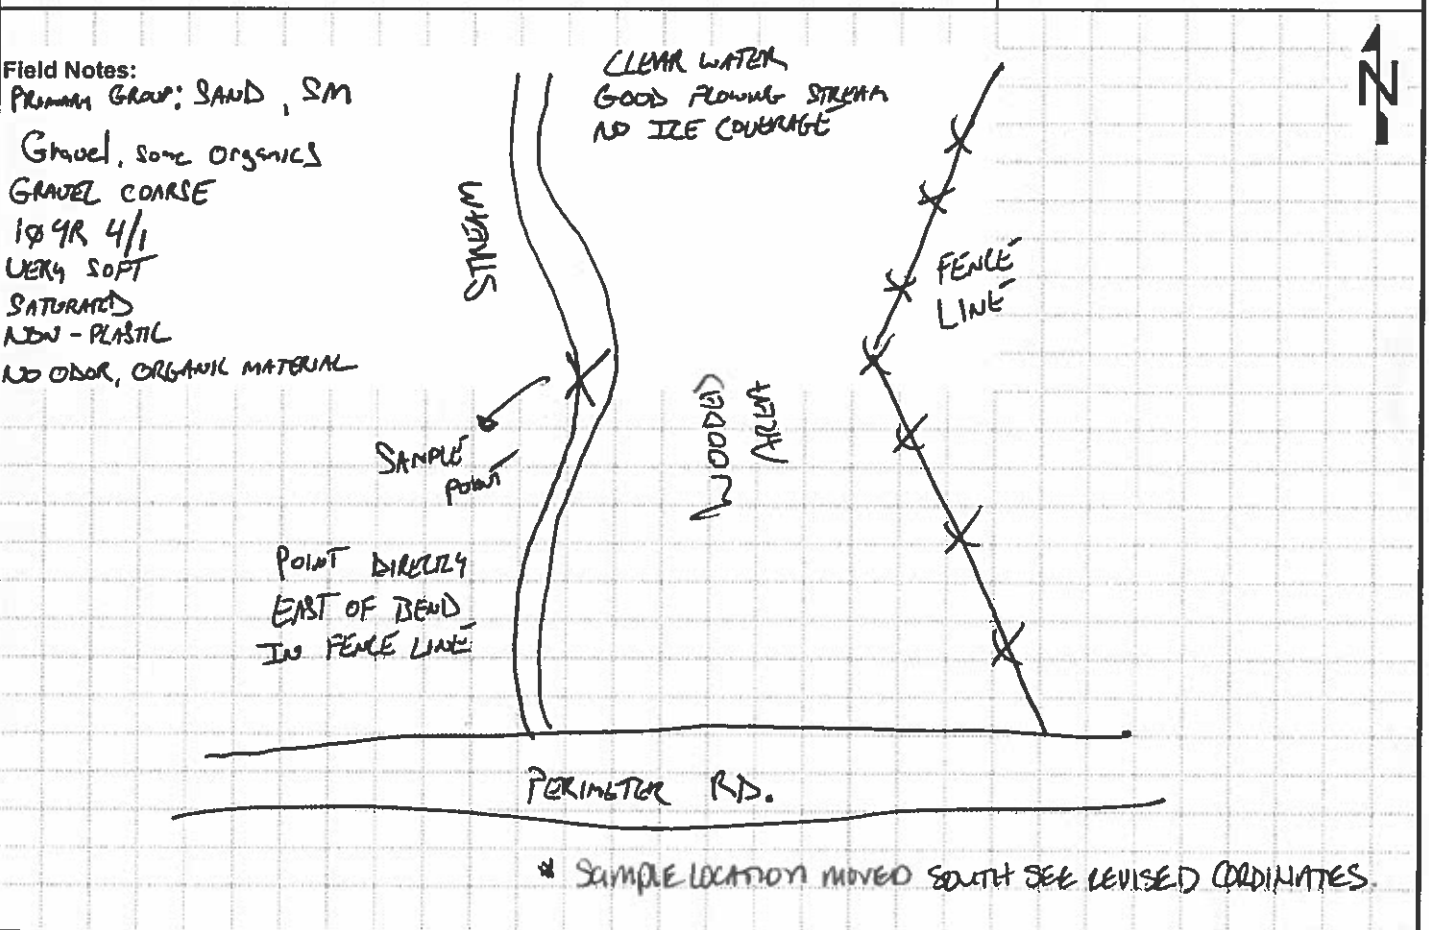 Field Notes:
PRIMARY GROUP: SAND, SM
Gravel, some organics
GRAVEL COARSE
10 YR 4/1
VERY SOFT
SATURATED
NON-PLASTIC
NO ODOR, ORGANIC MATERIAL
CLEAR WATER
GOOD FLOWING STREAM
NO ICE COVERAGE
N
STREAM
FENCE
LINE
WOODED
AREA
SAMPLE
POINT
POINT DIRECTLY
EAST OF BEND
IN FENCE LINE
PERIMETER RD.
* SAMPLE LOCATION MOVED SOUTH SEE REVISED CORDINATES.